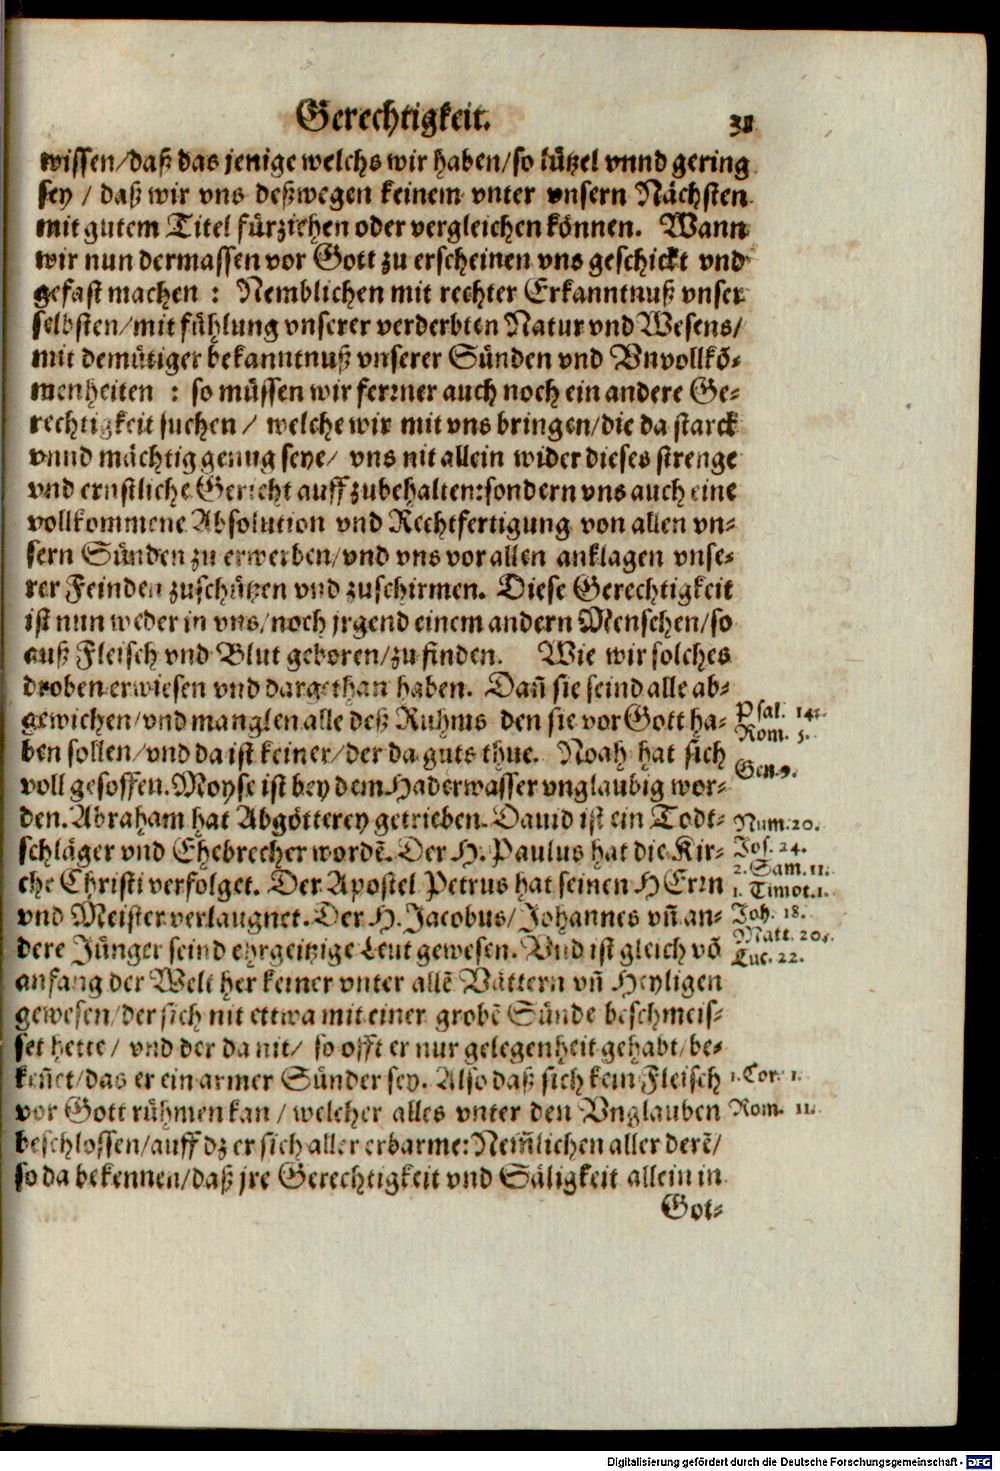 Gerechtigkeit. 38
wissen/daß das jenige welchs wir haben/so lützel vnnd gering
sey / daß wir vns deßwegen keinem vnter vnsern Nächsten
mit gutem Titel fürziehen oder vergleichen können. Wann
wir nun dermassen vor Gott zu erscheinen vns geschickt vnd
gefast machen : Nemblichen mit rechter Erkanntnuß vnser
selbsten/mit fühlung vnserer verderbten Natur vnd Wesens/
mit demütiger bekanntnuß vnserer Sünden vnd Vnvollkō-
menheiten : so müssen wir ferrner auch noch ein andere Ge-
rechtigkeit suchen / welche wir mit vns bringen/die da starck
vnnd mächtig genug seye/ vns nit allein wider dieses strenge
vnd ernstliche Gericht auffzubehalten:sondern vns auch eine
vollkommene Absolution vnd Rechtfertigung von allen vn-
sern Sünden zu erwerben/vnd vns vor allen anklagen vnse-
rer Feinden zuschützen vnd zuschirmen. Diese Gerechtigkeit
ist nun weder in vns/noch jrgend einem andern Menschen/so
auß Fleisch vnd Blut geboren/zu finden. Wie wir solches
droben erwiesen vnd dargethan haben. Dañ sie seind alle ab-
gewichen/vnd manglen alle deß Ruhms den sie vor Gott ha- Psal. 14.
Rom. 3.
ben sollen/vnd da ist keiner/der da guts thue. Noah hat sich Gen. 9.
voll gesoffen. Moyse ist bey dem Haderwasser vnglaubig wor-
den. Abraham hat Abgötterey getrieben. Dauid ist ein Todt- Num. 20.
schläger vnd Ehebrecher wordē. Der H. Paulus hat die Kir- Jos. 24.
2. Sam. 11.
che Christi verfolget. Der Apostel Petrus hat seinen HErrn 1. Timot. 1.
vnd Meister verlaugnet. Der H. Jacobus/Johannes vñ an- Joh. 18.
Matt. 20.
dere Jünger seind ehrgeitzige Leut gewesen. Vnd ist gleich vō Luc. 22.
anfang der Welt her keiner vnter allē Vättern vñ Heyligen
gewesen/der sich nit ettwa mit einer grobē Sünde beschmeis-
set hette/ vnd der da nit/ so offt er nur gelegenheit gehabt/be-
keñet/das er ein armer Sünder sey. Also daß sich kein Fleisch 1. Cor. 1.
vor Gott rühmen kan / welcher alles vnter den Vnglauben Rom. 11.
beschlossen/auff dz er sich aller erbarme: Nem̃lichen aller derē/
so da bekennen/daß jre Gerechtigkeit vnd Säligkeit allein in
Got-
Digitalisierung gefördert durch die Deutsche Forschungsgemeinschaft - DFG